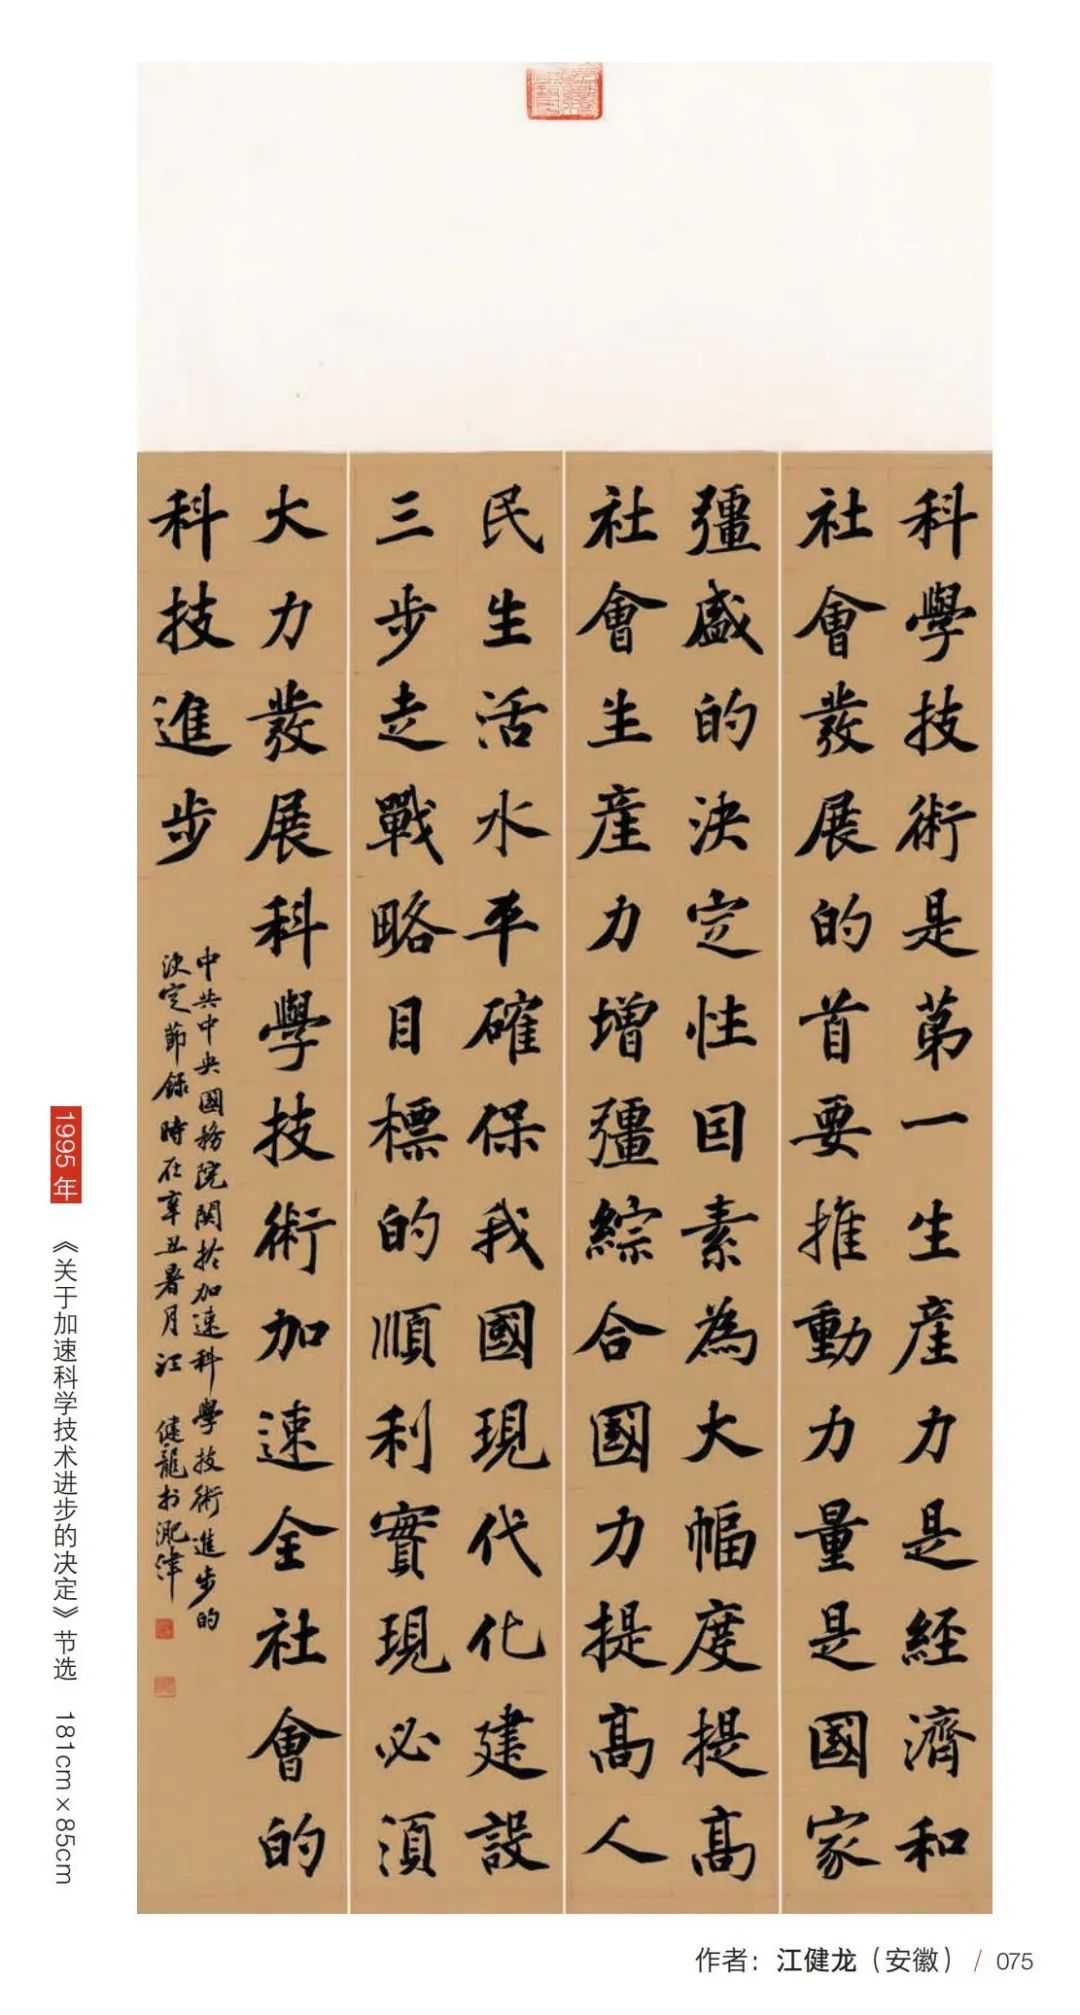 科學技術是第一生産力是經濟和
社會發展的首要推動力量是國家
彊盛的決定性因素為大幅度提高
社會生産力增彊綜合國力提高人
民生活水平確保我國現代化建設
三步走戰略目標的順利實現必須
大力發展科學技術加速全社會的
科技進步
中共中央國務院関於加速科學技術進步的
決定節錄時在辛丑暑月江健龍書淝津
1995年
《关于加速科学技术进步的决定》节选 181cm×85cm
作者：江健龙（安徽）/ 075